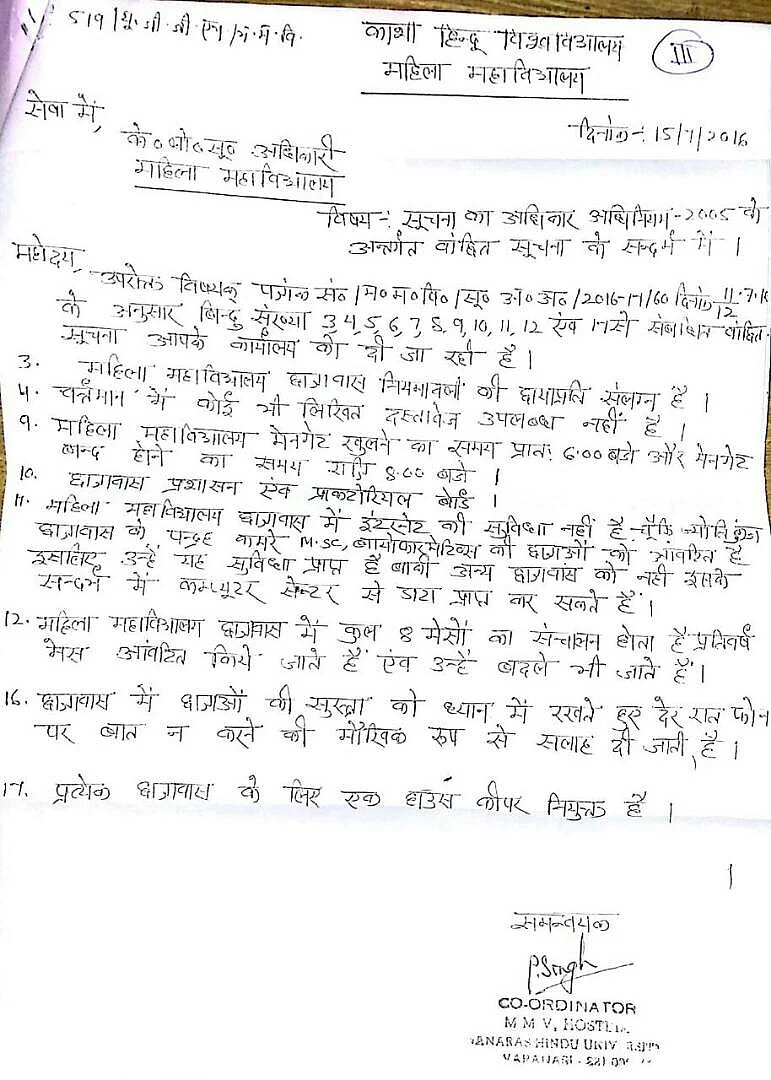 519/यू.जी.जी.एन/म.म.वि.
काशी हिन्दू विश्वविद्यालय
III
महिला महाविद्यालय
सेवा में,
दिनांक:- 15/7/2016
के०लो०सू० अधिकारी
महिला महाविद्यालय
विषय:- सूचना का अधिकार अधिनियम-2005 के
अन्तर्गत वांछित सूचना के सन्दर्भ में।
महोदय,
उपरोक्त विषयक पत्रांक सं०/म०म०वि०/सू०अ०अ०/2016-17/60 दिनांक-11.7.16/12
के अनुसार बिन्दु संख्या 3,4,5,6,7,8,9,10,11,12 एंव 17से संबंधित वांछित
सूचना आपके कार्यालय को दी जा रही है।
3. महिला महाविद्यालय छात्रावास नियमावली की छायाप्रति संलग्न है।
4. वर्तमान में कोई भी लिखित दस्तावेज उपलब्ध नहीं है।
9. महिला महाविद्यालय मेनगेट खुलने का समय प्रातः 6.00 बजे और मेनगेट
बन्द होने का समय रात्रि 8.00 बजे।
10. छात्रावास प्रशासन एंव प्राक्टोरियल बोर्ड।
11. महिला महाविद्यालय छात्रावास में इंटरनेट की सुविधा नहीं है - चूँकि ज्योति कुंज
छात्रावास के पन्द्रह कमरे M.SC, बायोफारमेटिक्स की छात्राओं को आवंटित है
इसलिए उन्हें यह सुविधा प्राप्त है बाकी अन्य छात्रावास को नही इसके
सन्दर्भ में कम्प्यूटर सेन्टर से डाटा प्राप्त कर सकते हैं।
12. महिला महाविद्यालय छात्रावास में कुल 8 मेसों का संचालन होता है प्रतिवर्ष
मेस आंवटित किये जाते हैं एंव उन्हें बदले भी जाते हैं।
16. छात्रावास में छात्राओं की सुरक्षा को ध्यान में रखते हुए देर रात फोन
पर बात न करने की मौखिक रूप से सलाह दी जाती है।
17. प्रत्येक छात्रावास के लिए एक हाउस कीपर नियुक्त है।
समन्वयक
P.Singh
CO-ORDINATOR
M M V, HOSTEL
BANARAS HINDU UNIV
VARANASI - 221